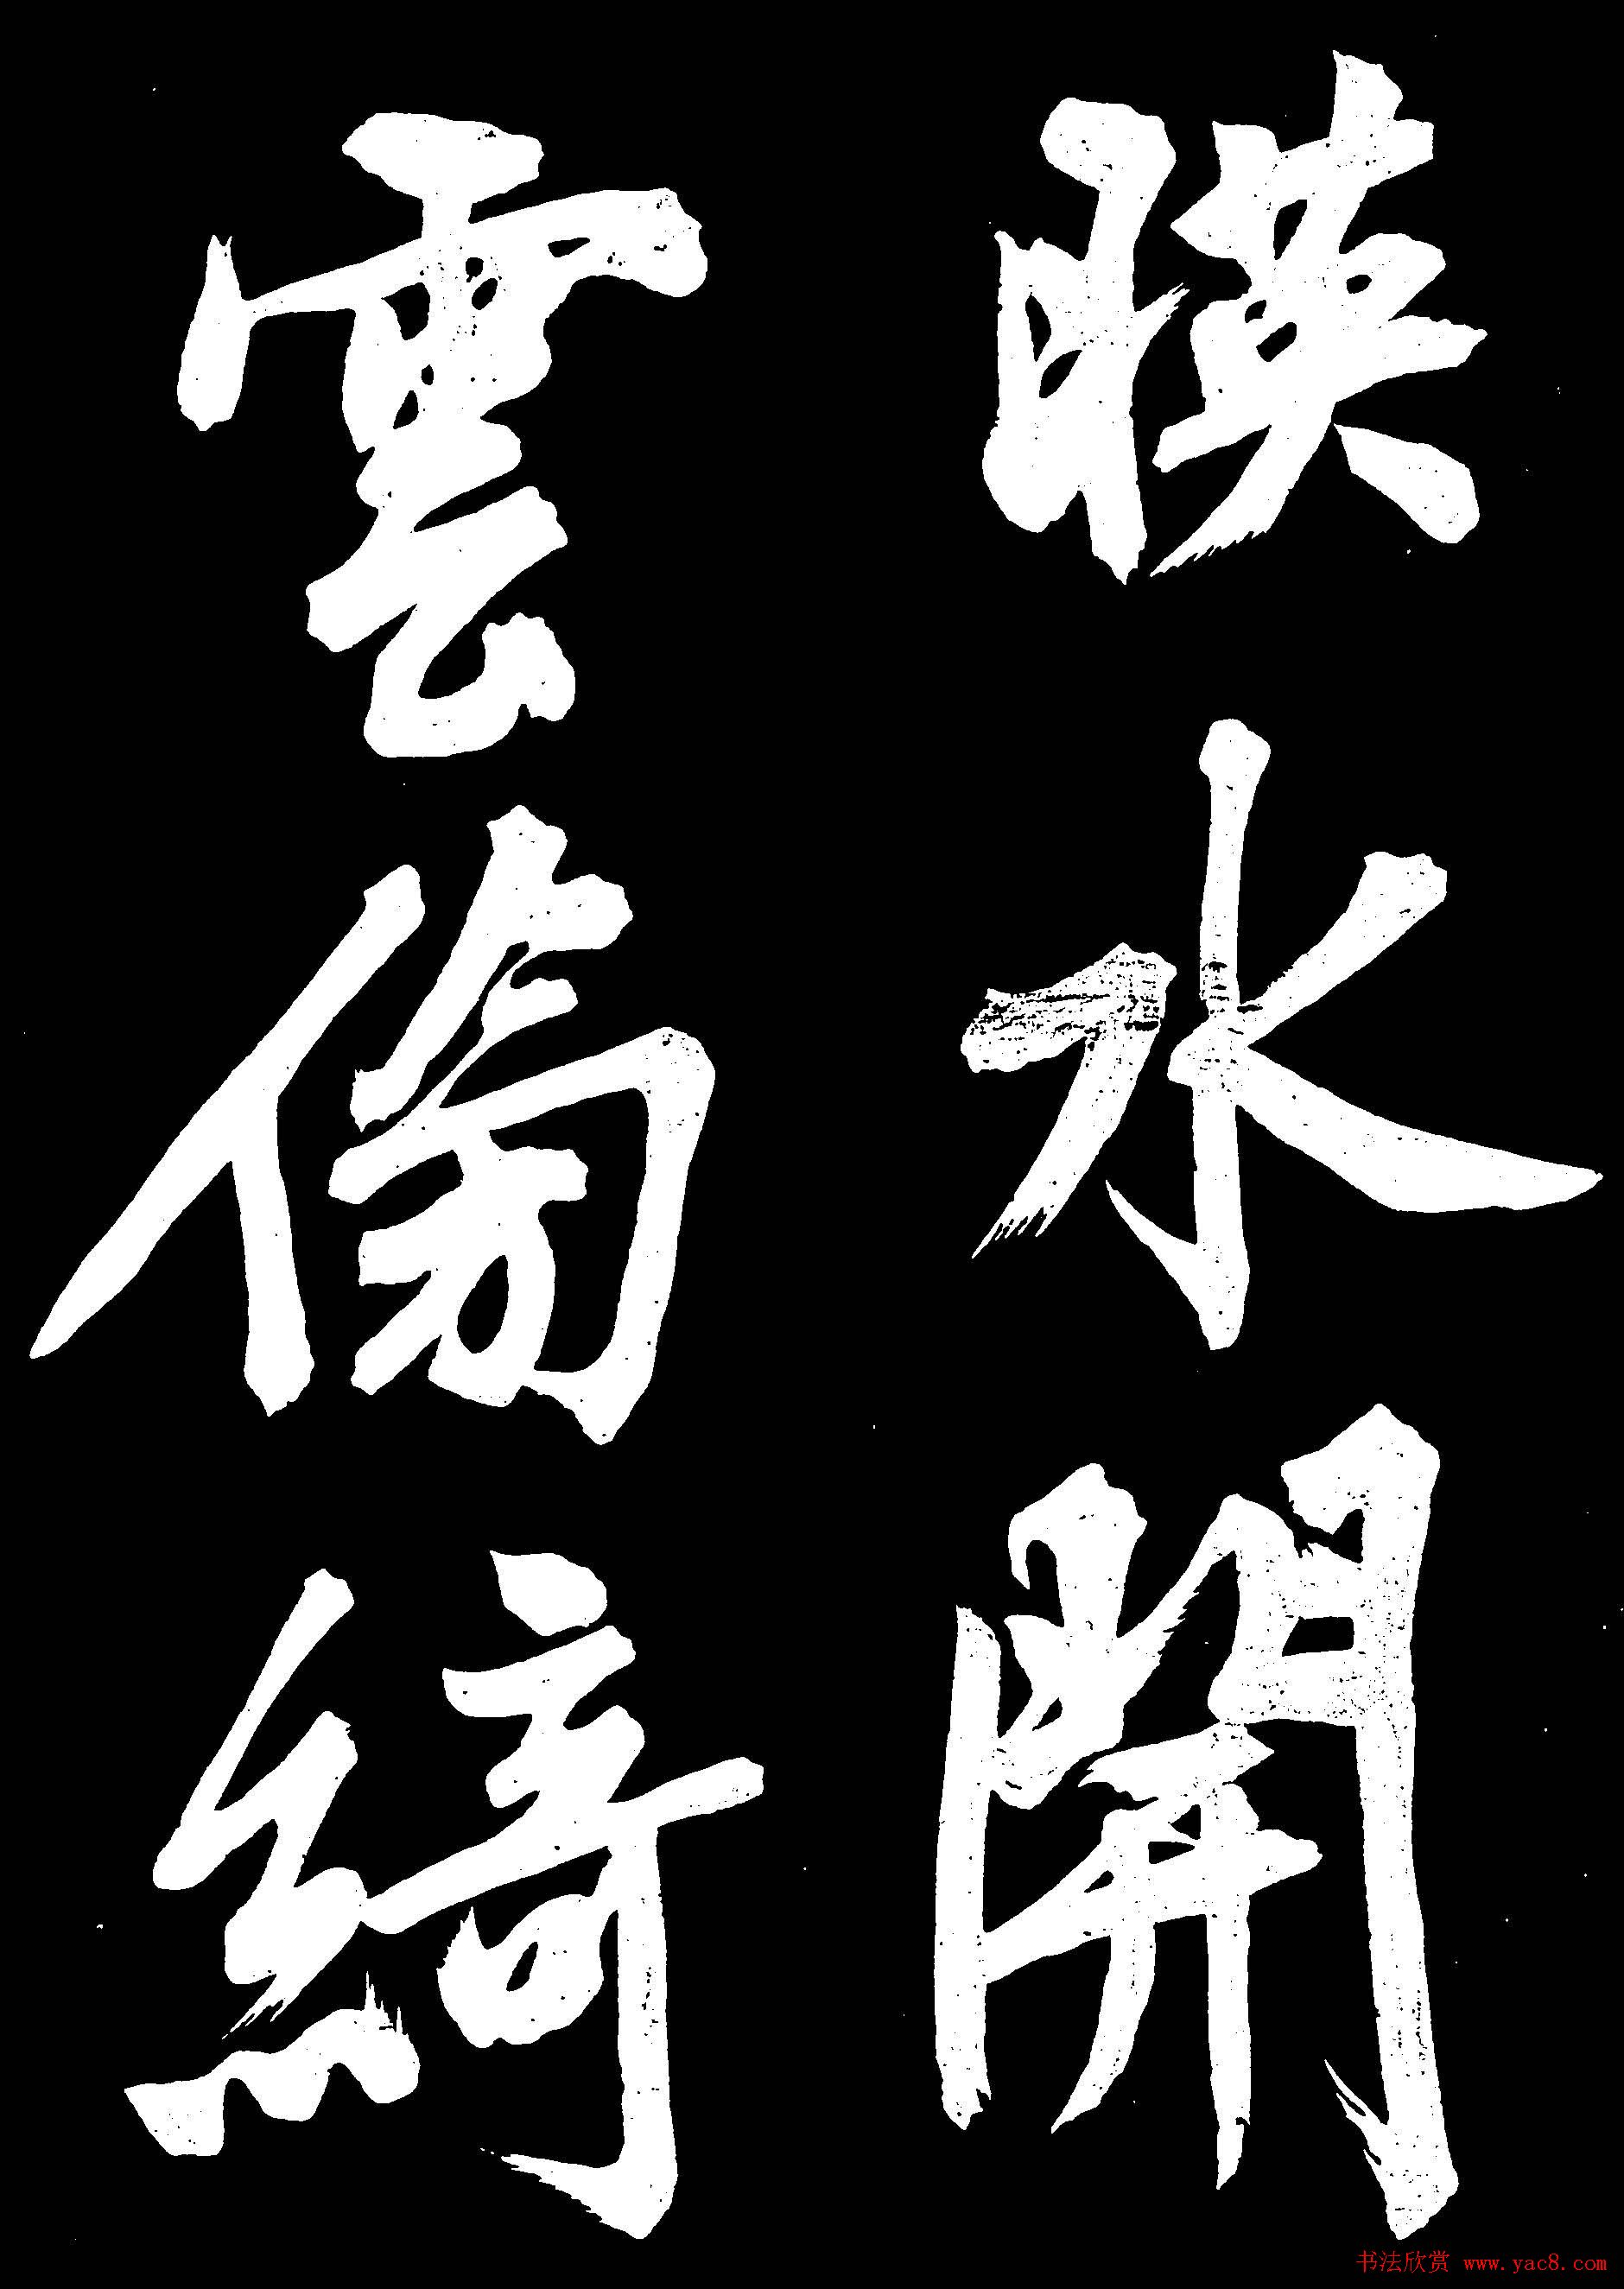 暎水開
雲綺
书法欣赏 www.yac8.com